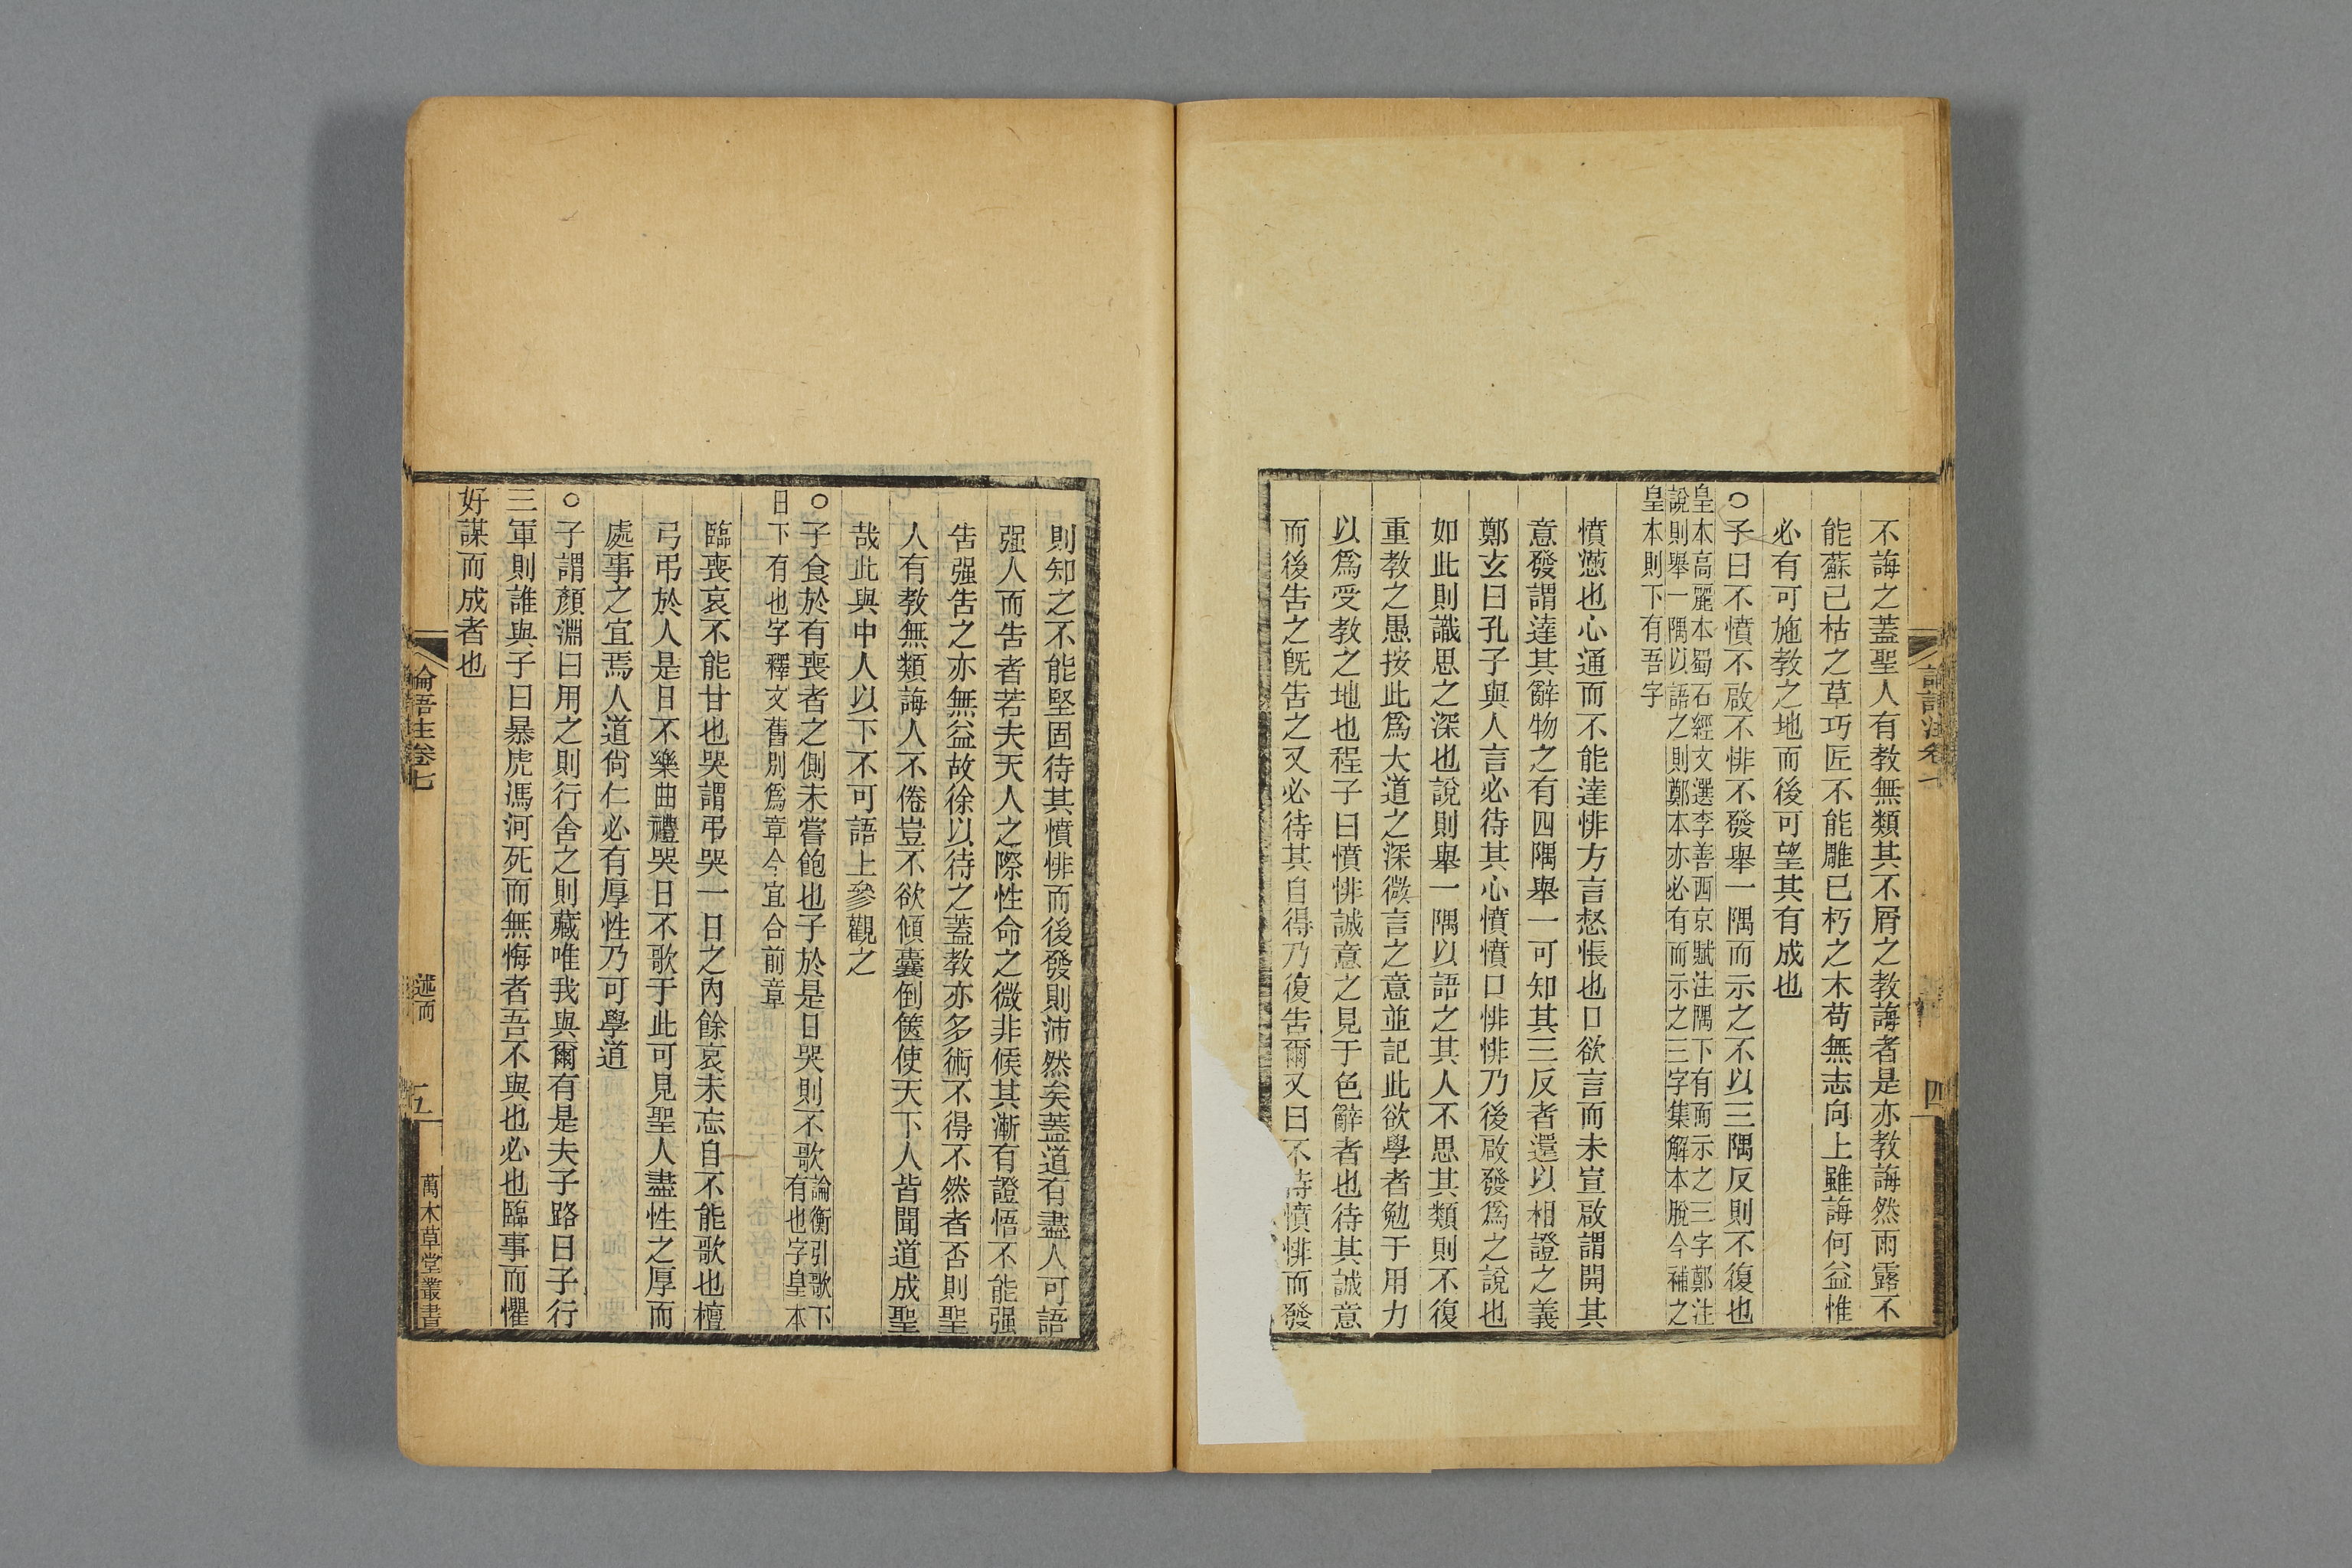 不誨之蓋聖人有教無類其不屑之教誨者是亦教誨然雨露不
能蘇已枯之草巧匠不能雕已朽之木苟無志向上雖誨何益惟
必有可施教之地而後可望其有成也
○子曰不憤不啟不悱不發舉一隅而示之不以三隅反則不復也
皇本高麗本蜀石經文選李善西京賦注隅下有而示之三字鄭注
說則舉一隅以語之則鄭本亦必有而示之三字集解本脫今補之
皇本則下有吾字
憤懣也心通而不能達悱方言怒悵也口欲言而未宣啟謂開其
意發謂達其辭物之有四隅舉一可知其三反者還以相證之義
鄭玄曰孔子與人言必待其心憤憤口悱悱乃後啟發爲之說也
如此則識思之深也說則舉一隅以語之其人不思其類則不復
重教之愚按此爲大道之深微言之意並記此欲學者勉于用力
以爲受教之地也程子曰憤悱誠意之見于色辭者也待其誠意
而後告之旣告之又必待其自得乃復告爾又曰不待憤悱而發
四
則知之不能堅固待其憤悱而後發則沛然矣蓋道有盡人可語
强人而告者若夫天人之際性命之微非候其漸有證悟不能强
告强告之亦無益故徐以待之蓋教亦多術不得不然者否則聖
人有教無類誨人不倦豈不欲傾囊倒篋使天下人皆聞道成聖
哉此與中人以下不可語上參觀之
○子食於有喪者之側未嘗飽也子於是日哭則不歌論衡引歌下
有也字皇本
日下有也字釋文舊別爲章今宜合前章
臨喪哀不能甘也哭謂弔哭一日之內餘哀未忘自不能歌也檀
弓弔於人是日不樂曲禮哭日不歌于此可見聖人盡性之厚而
處事之宜焉人道尙仁必有厚性乃可學道
○子謂顏淵曰用之則行舍之則藏唯我與爾有是夫子路曰子行
三軍則誰與子曰暴虎馮河死而無悔者吾不與也必也臨事而懼
好謀而成者也
論語注卷七
述而
五
萬木草堂叢書